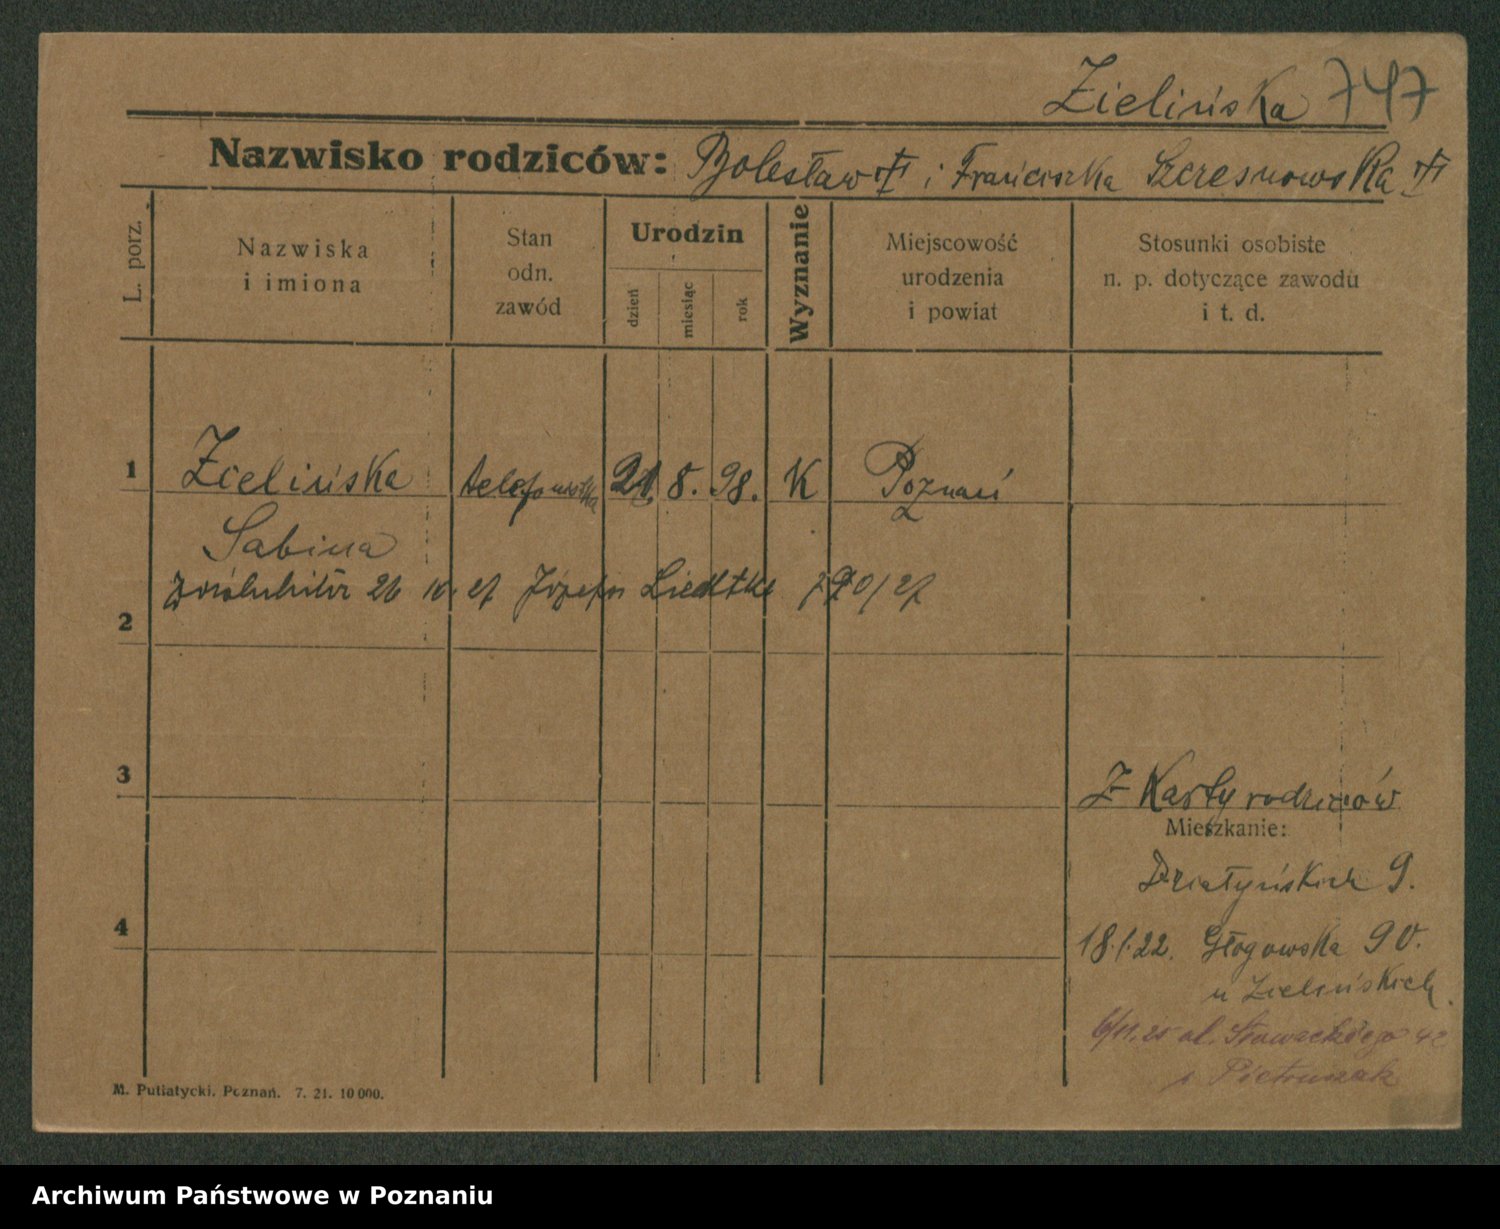 Zielińska 747
Nazwisko rodziców: Bolesław ✝ i Franciszka Szczesnowska ✝
L. porz.
Nazwiska
i imiona
Stan
odn.
zawód
Urodzin
dzień
miesiąc
rok
Wyznanie
Miejscowość
urodzenia
i powiat
Stosunki osobiste
n. p. dotyczące zawodu
i t. d.
1 Zielińska telefonistka 21. 8. 98. K Poznań
Sabina
zaślubiła 26 10. 27 Józefa Liedtke 790/27
2
3
Z Karty rodziców
Mieszkanie:
Działyńskich 9.
4
18.1.22. Głogowska 90.
u Zielińskich.
6/11.25 ul. Słowackiego 42
Pietruszak
M. Putiatycki, Poznań. 7. 21. 10 000.
Archiwum Państwowe w Poznaniu